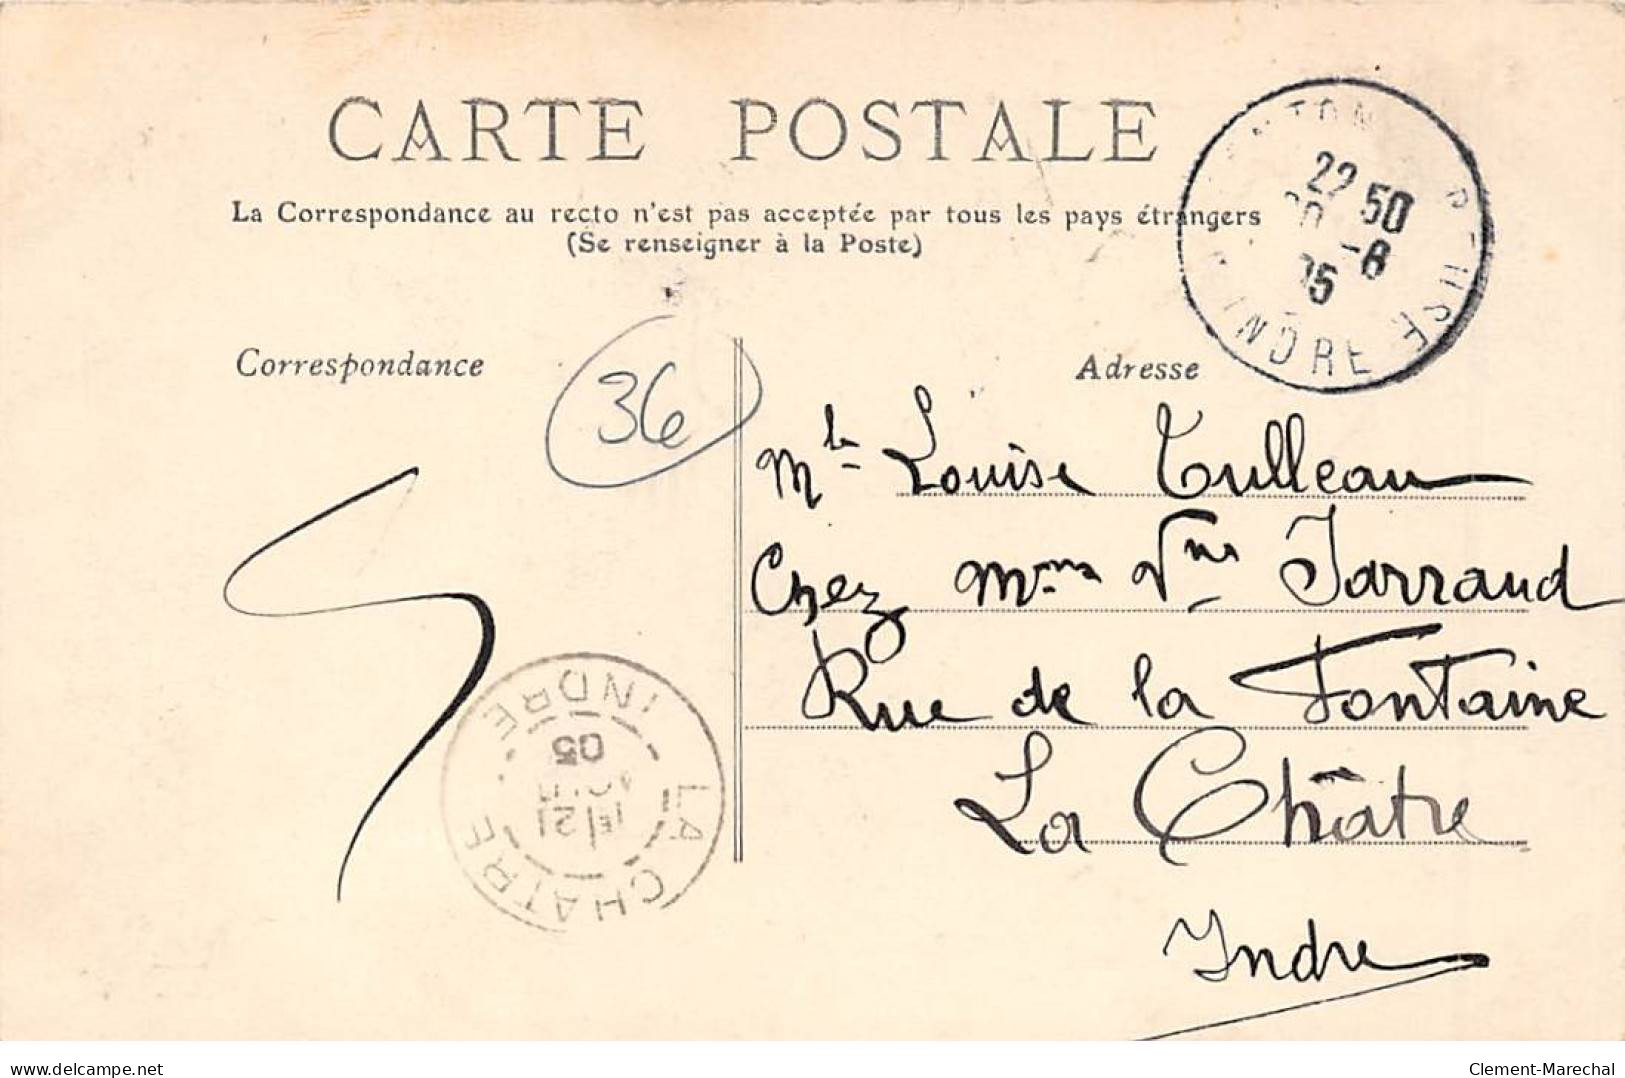 CARTE POSTALE
La Correspondance au recto n'est pas acceptée par tous les pays étrangers
(Se renseigner à la Poste)
22 50
-8
05
INDRE
Correspondance
36
Adresse
Mlle Louise Tulleau
Chez Mme Vve Jarraud
Rue de la Fontaine
La Châtre
Indre
LA CHATRE
21
05
INDRE
delcampe.net
Clement-Marechal